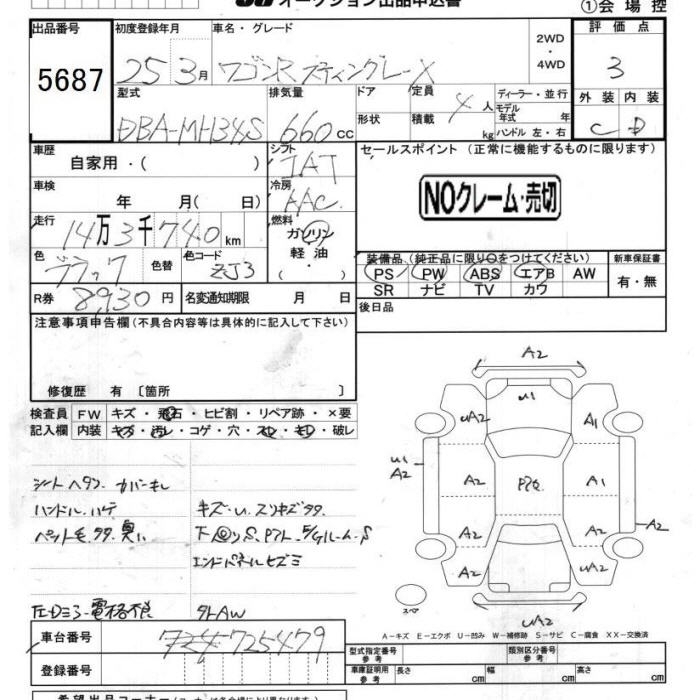 オークション出品申込書
①会場控
出品番号 初度登録年月 車名・グレード 評価点
5687
25 3月 ワゴンR スティングレーX
2WD
・
4WD
3
型式 排気量 ドア 定員 ディーラー・並行
DBA-MH34S 660cc 形状 積載 4人 kg モデル年式 年 ハンドル 左・右
外装 内装
C D
車歴 シフト セールスポイント (正常に機能するものに限ります)
自家用・( ) IAT
車検 冷房
年 月( 日) AAC
NOクレーム・売切
走行 燃料
14万3千740km ガソリン
軽油
・
色 色替 色コード
ブラック ZJ3
装備品 (純正品に限り○をつけてください) 新車保証書
PS PW ABS エアB AW 有・無
SR ナビ TV カワ
R券 8,930円 名変通知期限 月 日
後日品
注意事項申告欄(不具合内容等は具体的に記入して下さい)
修復歴 有 〔箇所 〕
検査員 FW キズ・飛石・ヒビ割・リペア跡・×要
記入欄 内装 キズ・汚レ・コゲ・穴・スレ・キレ・破レ
シートヘタリ カバーキレ
ハンドルハゲ
ペット毛 多々 臭い
キズ・U.スリキズ多々
エンドパネルヒズミ
左Dミラー電格不良
外AW
A2
U1
UA2 A1
U1
A2
A2 A1
A2 A2
A2
A2 UA2
スペア
UA2
A-キズ E-エクボ U-凹み W-補修跡 S-サビ C-腐食 XX-交換済
車台番号 725479
登録番号
型式指定番号 参考 類別区分番号 参考
車庫証明用 参考 長さ cm 幅 cm 高さ cm
希望出品コーナー